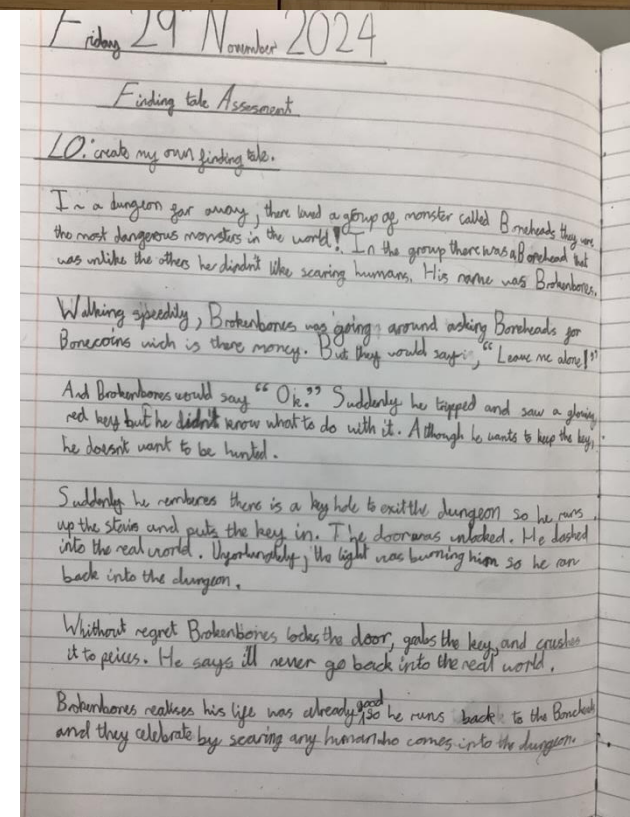 Friday 29th November 2024
Finding tale Assesment
LO: create my own finding tale.
In a dungeon far away, there lived a group of monster called Boneheads they were
the most dangerous monsters in the world! In the group there was a Bonehead that
was unlike the others he dindn't like scaring humans. His name was Brokenbones.
Walking speedily, Brokenbones was going around asking Boneheads for
Bonecoins wich is there money. But they would say, "Leave me alone!"
And Brokenbones would say "Ok." Suddenly he tripped and saw a glowing
red key but he didn't know what to do with it. Although he wants to keep the key,
he doesn't want to be hunted.
Suddenly he remberes there is a key hole to exit the dungeon so he runs
up the stairs and puts the key in. The door was unlocked. He dashed
into the real world. Unfortunately, the light was burning him so he ran
back into the dungeon.
Whithout regret Brokenbones locks the door, grabs the key, and crushes
it to peices. He says ill never go back into the real world.
Brokenbones realises his life was already good so he runs back to the Boneheads
and they celebrate by scaring any human who comes into the dungeon.